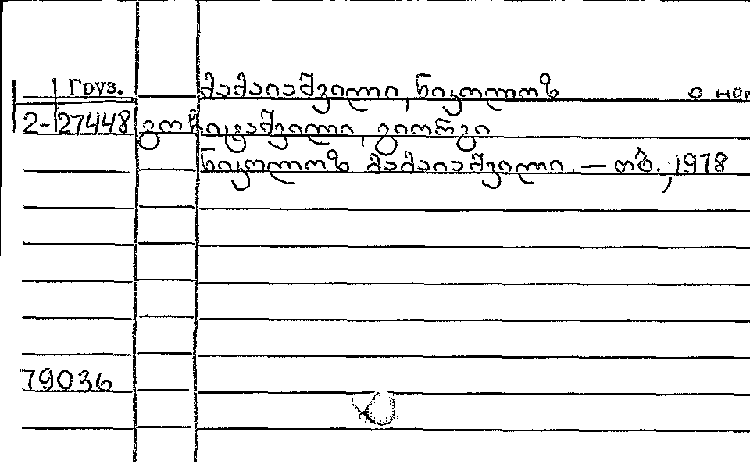 Груз. მამაიაშვილი, ნიკოლოზ о
2-27448 გიორგი
ნიკოლოზ მამაიაშვილი. — თბ., 1978
79036